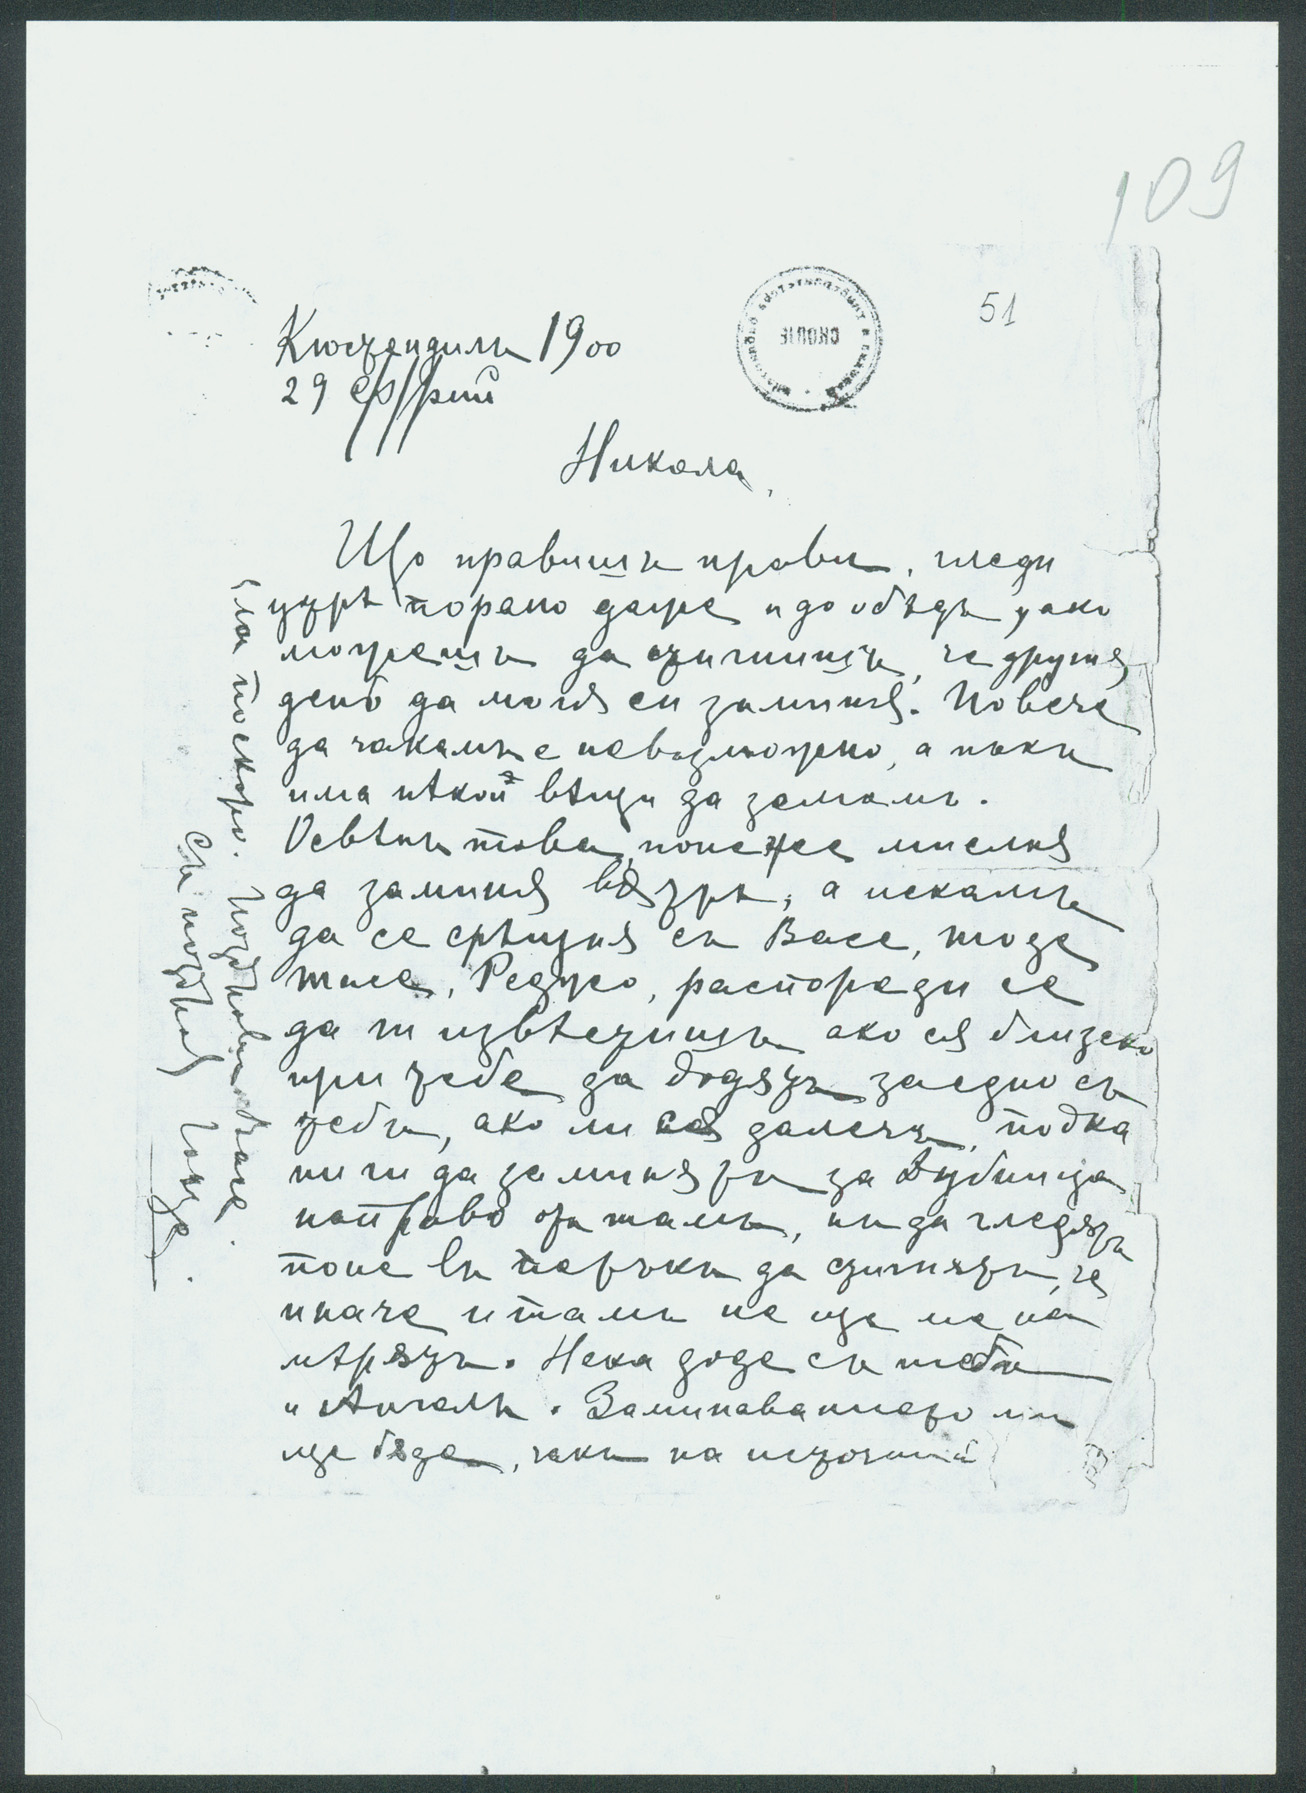 109
51
СКОПЈЕ
Кюстендилъ 1900
29 Фврий
Никола,
Що правишъ прави, гледи
утрѣ порано даже и до обѣдъ, ако
можешъ да стигнишъ, че другия
день да могѫ си заминѫ. Повече
да чакамъ е невъзможно, а пъкъ
има нѣкой вѣщи да земамъ.
Освѣнъ това, понеже мислия
да заминѫ вътрѣ, а искамъ
да се срѣщнѫ съ Васе, тодо
тиле, Редужо, распореди се
да ги извѣстишъ ако сѫ близско
при тебе да додѫтъ заедно съ
тебъ, ако ли сѫ далечъ, подка
ни ги да заминѫтъ за Дубница
направо отъ тамъ, нъ да гледѫтъ
поне въ петъкъ да стигнѫтъ, че
иначе и тамъ не ще ме на
мѣрѫтъ. Нека доде съ тебъ
и Ангелъ. Заминаванието ми
ще бѫде, чакъ на источний
ела поскоро. Поздрови
Съ поздрав Гоце.